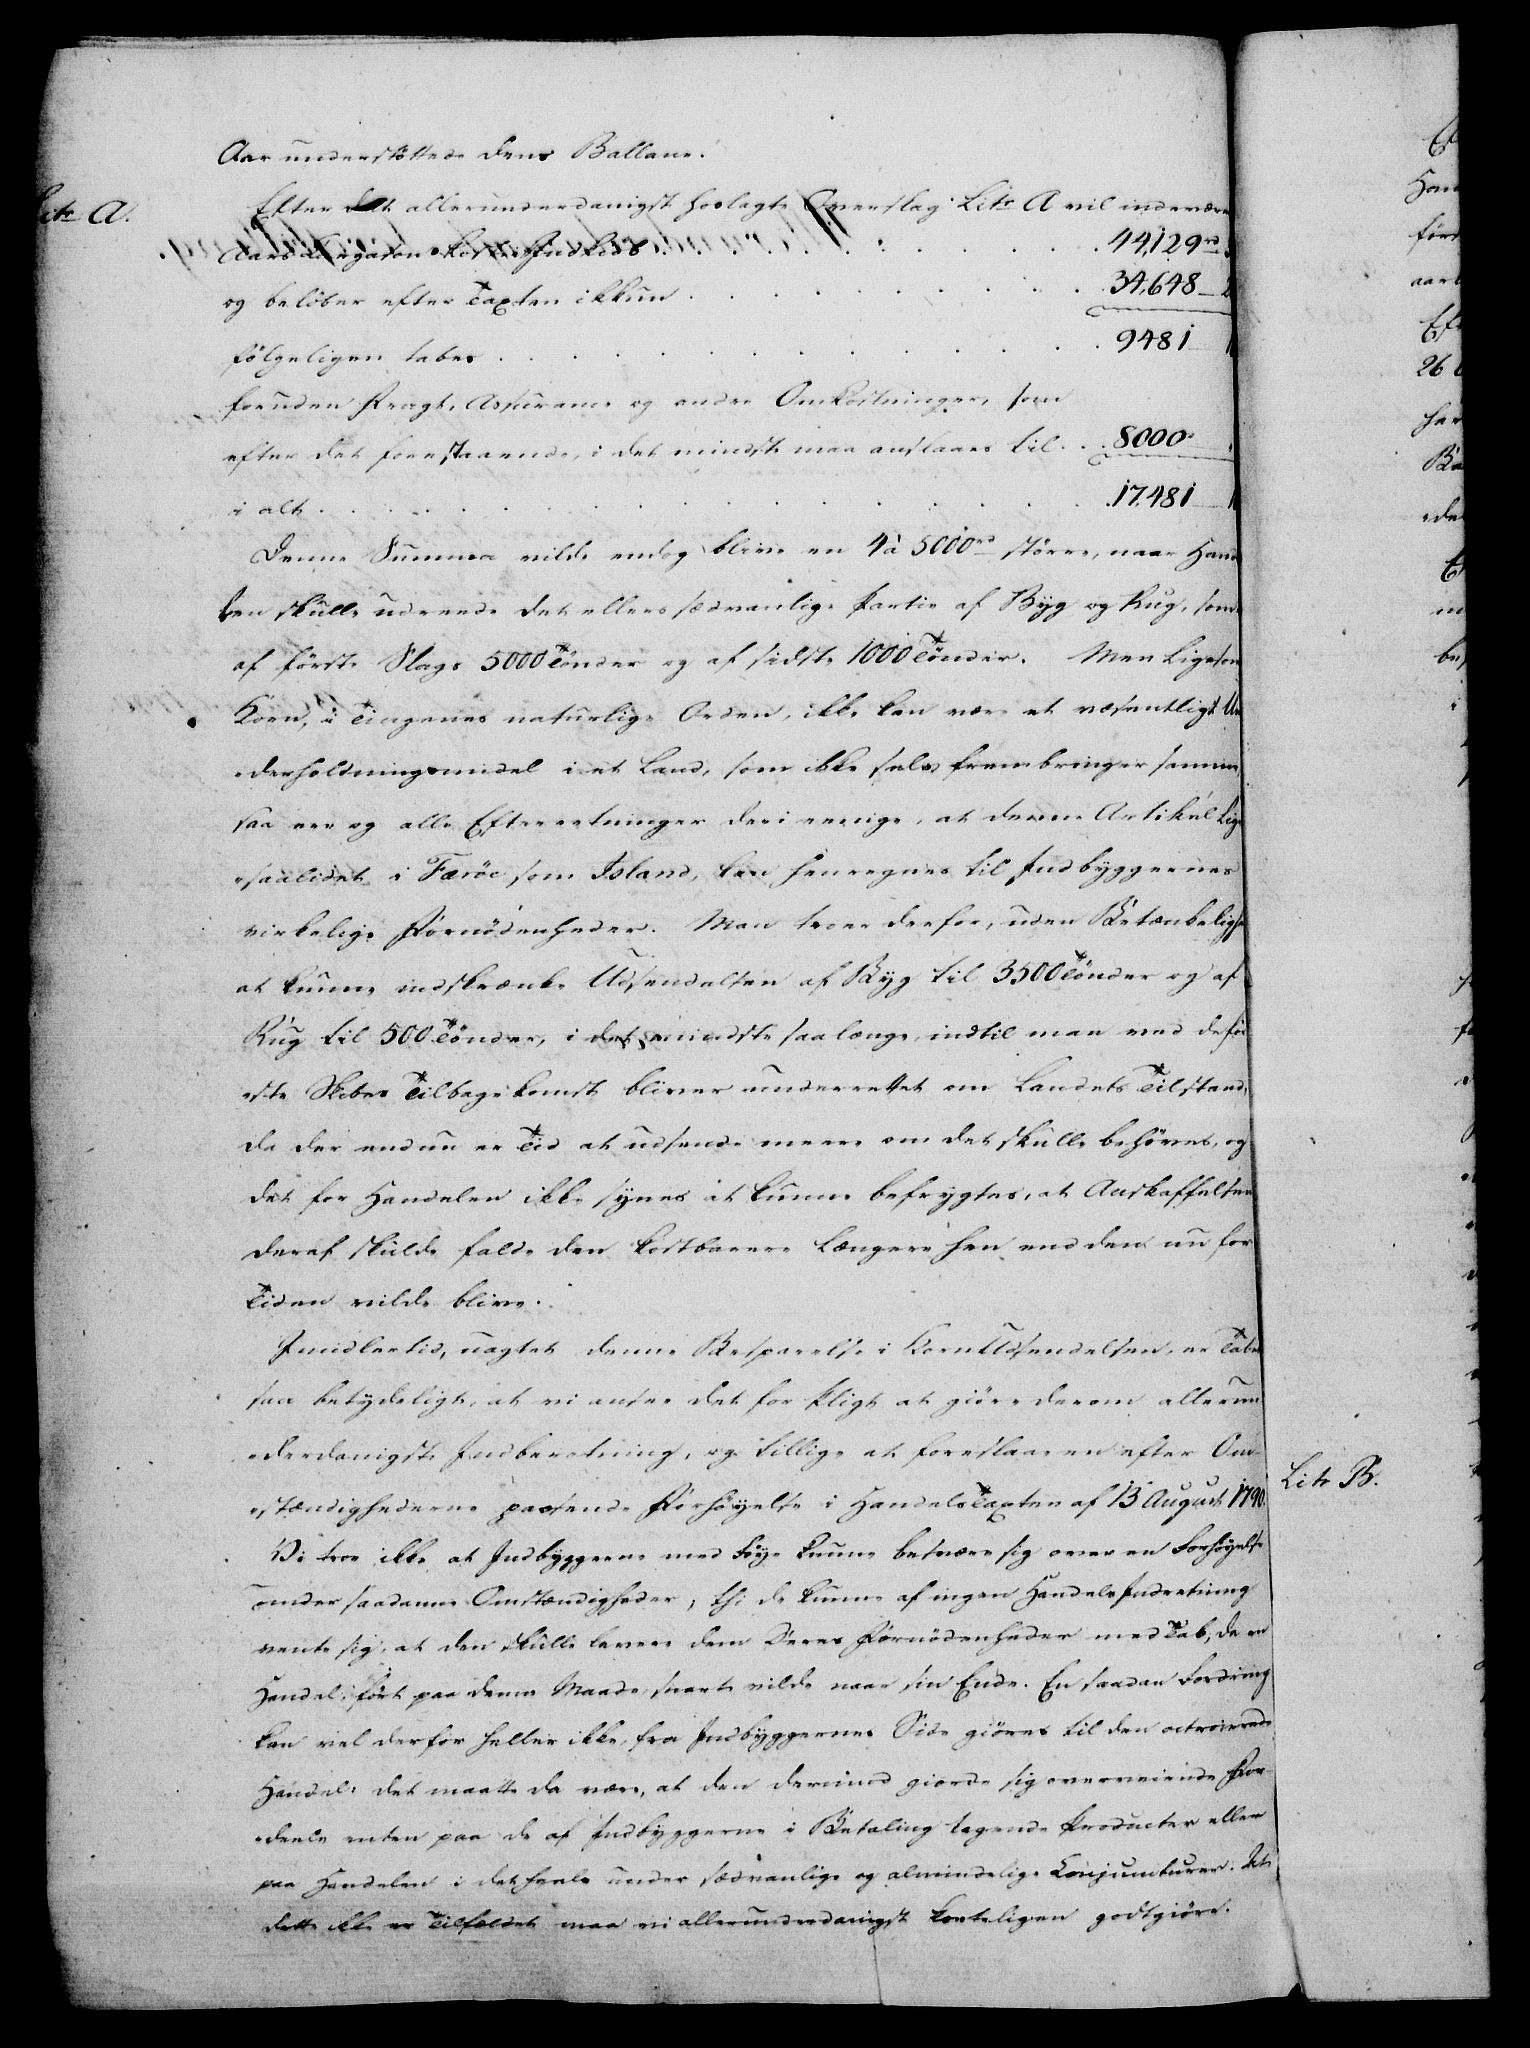 Aar understöttede dens Ballance.
Litr A.
Efter det allerunderdanigst hoslagte Overslag Litr A vil indeværen
Aars Cargaison koste Indkiöb . . . 44,129 rd
og belöber efter Taxten ikkun . . . 34,648
fölgeligen tabes . . . 9481
foruden Fragt, Assurance og andre Omkostninger, som
efter det forestaaende, i det mindste maa anslaaes til . . 8000
i alt . . . 17,481
Denne Summa vilde endog blive en 4 à 5000 rd större, naar Hand
len skulle udreede det ellers sædvanlige Partie af Byg og Rug, som
af förste Slags 5000 Tönder og af sidste 1000 Tönder. Men ligesom
Korn, i Tingenes naturlige Orden, ikke kan være et væsentligt Un
derholdningsmidel i et Land, som ikke selv frembringer samme,
saa ere og alle Efterretninger deri eenige, at denne Artikel lige
saalidet i Færöe som Island, kan henregnes til Indbyggernes
virkelige Fornödenheder. Man troer derfor, uden Betænkelighe
at kunne indskrænke Udsendelsen af Byg til 3500 Tönder og af
Rug til 500 Tönder, i det mindste saa længe, indtil man ved de för
ste Skibes Tilbagekomst bliver underrettet om Landets Tilstand,
da der endnu er Tid at udsende meere om det skulle behöves, og
det for Handelen ikke synes at kunne befrygtes, at Anskaffelsen
deraf skulde falde den kostbarere længere hen end den nu for
Tiden vilde blive.
Imidlertid, uagtet denne Besparelse i KornUdsendelsen, er Tabet
saa betydeligt, at vi ansee det for Pligt at giöre derom allerun
derdanigste Indberetning, og tillige at foreslaae en efter Om
stændighederne passende Forhöyelse i HandelsTaxten af 13 August 1790.
Litr B.
Vi troe ikke at Indbyggerne med Föye kunne besvære sig over en Forhöyelse
under saadanne Omstændigheder, thi de kunne af ingen HandelsIndretning
vente sig, at den skulle levere dem Deres Fornödenheder med Tab, da en
Handel, fört paa denne Maade, snart vilde naae sin Ende. En saadan Fordring
kan vel derfor heller ikke, fra Indbyggernes Side giöres til den octroierede
Handel: det maatte da være, at den derimod giorde sig overveiende For
deele enten paa de af Indbyggerne i Betaling tagende Producter eller
paa Handelen i det heele under sædvanlige og almindelige Conjuncturer. At
dette ikke er Tilfældet maa vi allerunderdanigst korteligen godtgiöre.